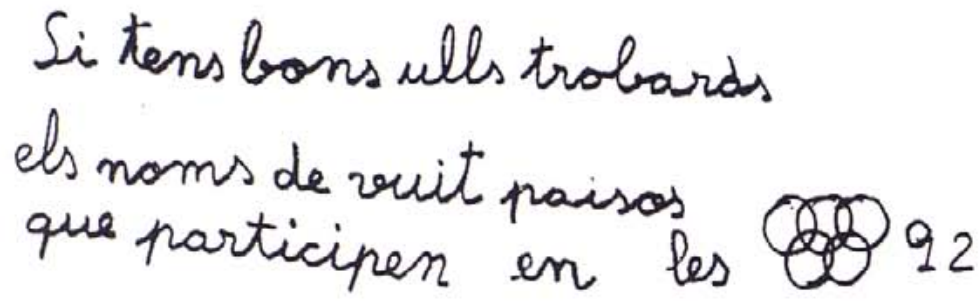 Si tens bons ulls trobaràs
els noms de vuit paisos
que participen en les 92